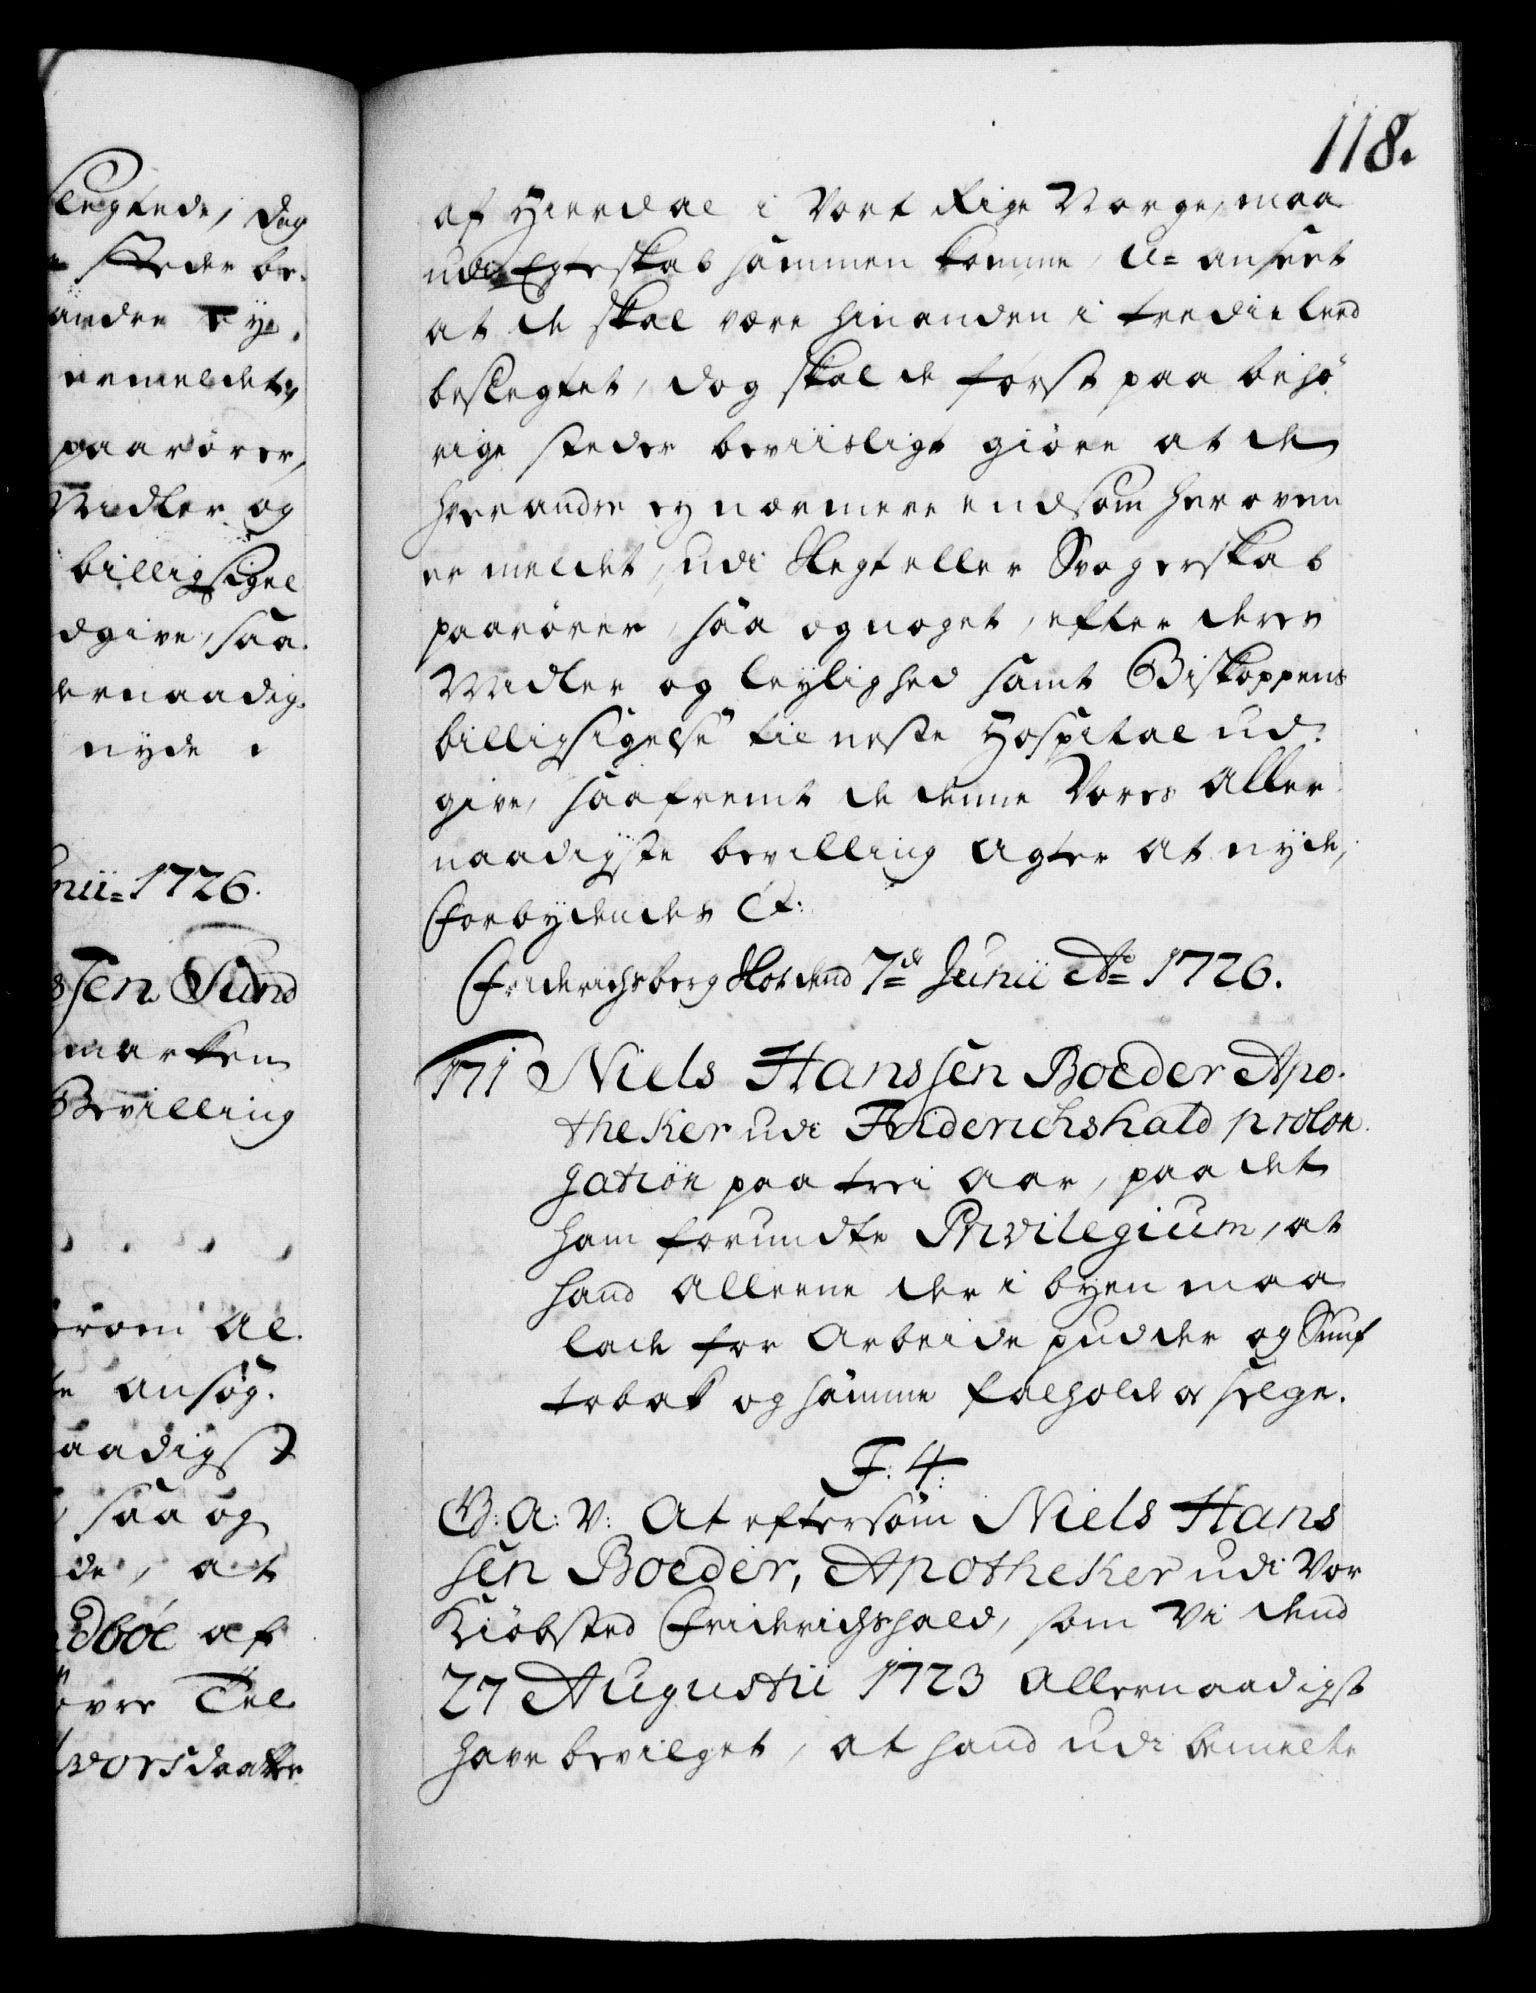 slegtede, dog
steder be-
andre Eye,
ermeldet,
paarører,
Midler og
billigsigel
dgive, saa-
ernaadig-
nyde
nii= 1726.
ssen Sund
marken
Bevilling
erom Al-
te ansøg-
aadigst
saa og
de, at
dböe af
øvre Tel
Tvorsdaatter
118.
af Hierdal i Vort Rige Norge, maa
udi Egteskab sammen komme, U-anseet
at de skal være hinanden i tredie Leed
beslegtet, dog skal de først paa behø-
rige steder beviisligt giøre at de
hverandre ey nærmere end som her oven
er meldet, udi Slegt eller Svogerskab
paarører, saa og noget, efter deres
Midler og leylighed samt Biskoppens
billigsigelse til neste Hospital ud-
give, saafremt de denne Vores Aller
naadigste bevilling agter at nyde,
Forbydendes Ct:
Friderichsberg Slot dend 7de Junii Ao= 1726.
171 Niels Hanssen Boeder Apo-
theker udi Friderichshald prolon-
gation paa trei Aar, paa det
ham forundte Privilegium, at
hand Alleene der i byen maa
lade for Arbeide pudder og Snuf
tobak og samme falholde og selge.
F: 4:
G: A: V: At eftersom Niels Hans
sen Boeder, Apotheker udi Vor
Kiøbsted Friderichshald, som Vi dend
27 Augustii 1723 Allernaadigst
have bevilget, at hand udi bemelte